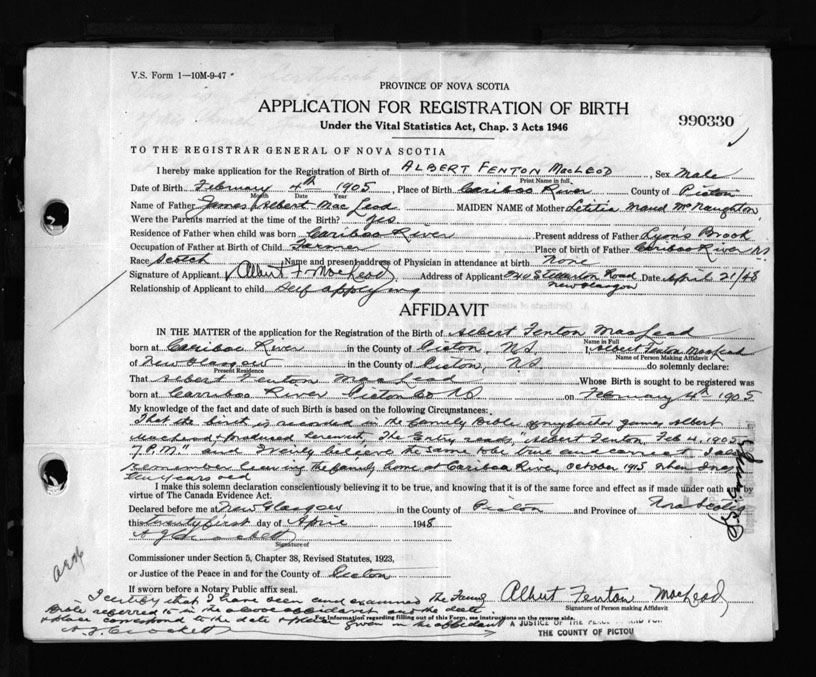 V.S. Form 1—10M-9-47
PROVINCE OF NOVA SCOTIA
APPLICATION FOR REGISTRATION OF BIRTH
Under the Vital Statistics Act, Chap. 3 Acts 1946
990330
TO THE REGISTRAR GENERAL OF NOVA SCOTIA
I hereby make application for the Registration of Birth of ALBERT FENTON MacLEOD, Sex Male
Print Name in full
Date of Birth February 4th 1905, Place of Birth Cariboo River County of Pictou
Month Date Year
Name of Father James Albert MacLeod MAIDEN NAME of Mother Letitia Maud McNaughton
Were the Parents married at the time of the Birth? yes
Residence of Father when child was born Cariboo River Present address of Father Lyons Brook
Occupation of Father at Birth of Child Farmer Place of birth of Father Cariboo River NS
Race Scotch Name and present address of Physician in attendance at birth None
Signature of Applicant Albert F MacLeod Address of Applicant Stewarton Road Date April 21/48
New Glasgow
Relationship of Applicant to child Self applying
AFFIDAVIT
IN THE MATTER of the application for the Registration of the Birth of Albert Fenton MacLeod
Name in Full
born at Cariboo River in the County of Pictou, N.S. I, Albert Fenton MacLeod
Name of Person Making Affidavit
of New Glasgow in the County of Pictou, N.S. do solemnly declare:
Present Residence
That Albert Fenton MacLeod Whose Birth is sought to be registered was
born at Carriboo River Pictou Co NS on February 4th 1905
My knowledge of the fact and date of such Birth is based on the following Circumstances:
That the birth is recorded in the family Bible of my father James Albert
MacLeod & produced herewith, The Entry reads, "Albert Fenton, Feb 4, 1905
7 P.M." and I verily believe the same to be true and correct. I also
remember leaving the family home at Cariboo River, October 1915 when I was
ten years old
I make this solemn declaration conscientiously believing it to be true, and knowing that it is of the same force and effect as if made under oath and by
virtue of The Canada Evidence Act.
Declared before me at New Glasgow in the County of Pictou and Province of Nova Scotia
this twenty first day of April 1948
A J Crockett
Signature of
Commissioner under Section 5, Chapter 38, Revised Statutes, 1923,
or Justice of the Peace in and for the County of Pictou
If sworn before a Notary Public affix seal.
Albert Fenton MacLeod
Signature of Person making Affidavit
I certify that I have seen and examined the Family
Bible referred to in the above affidavit and the date
& place correspond to the date & place given in the affidavit
For Information regarding filling out of this Form, see Instructions on the reverse side.
A. J. Crockett
A JUSTICE OF THE PEACE AND FOR
THE COUNTY OF PICTOU